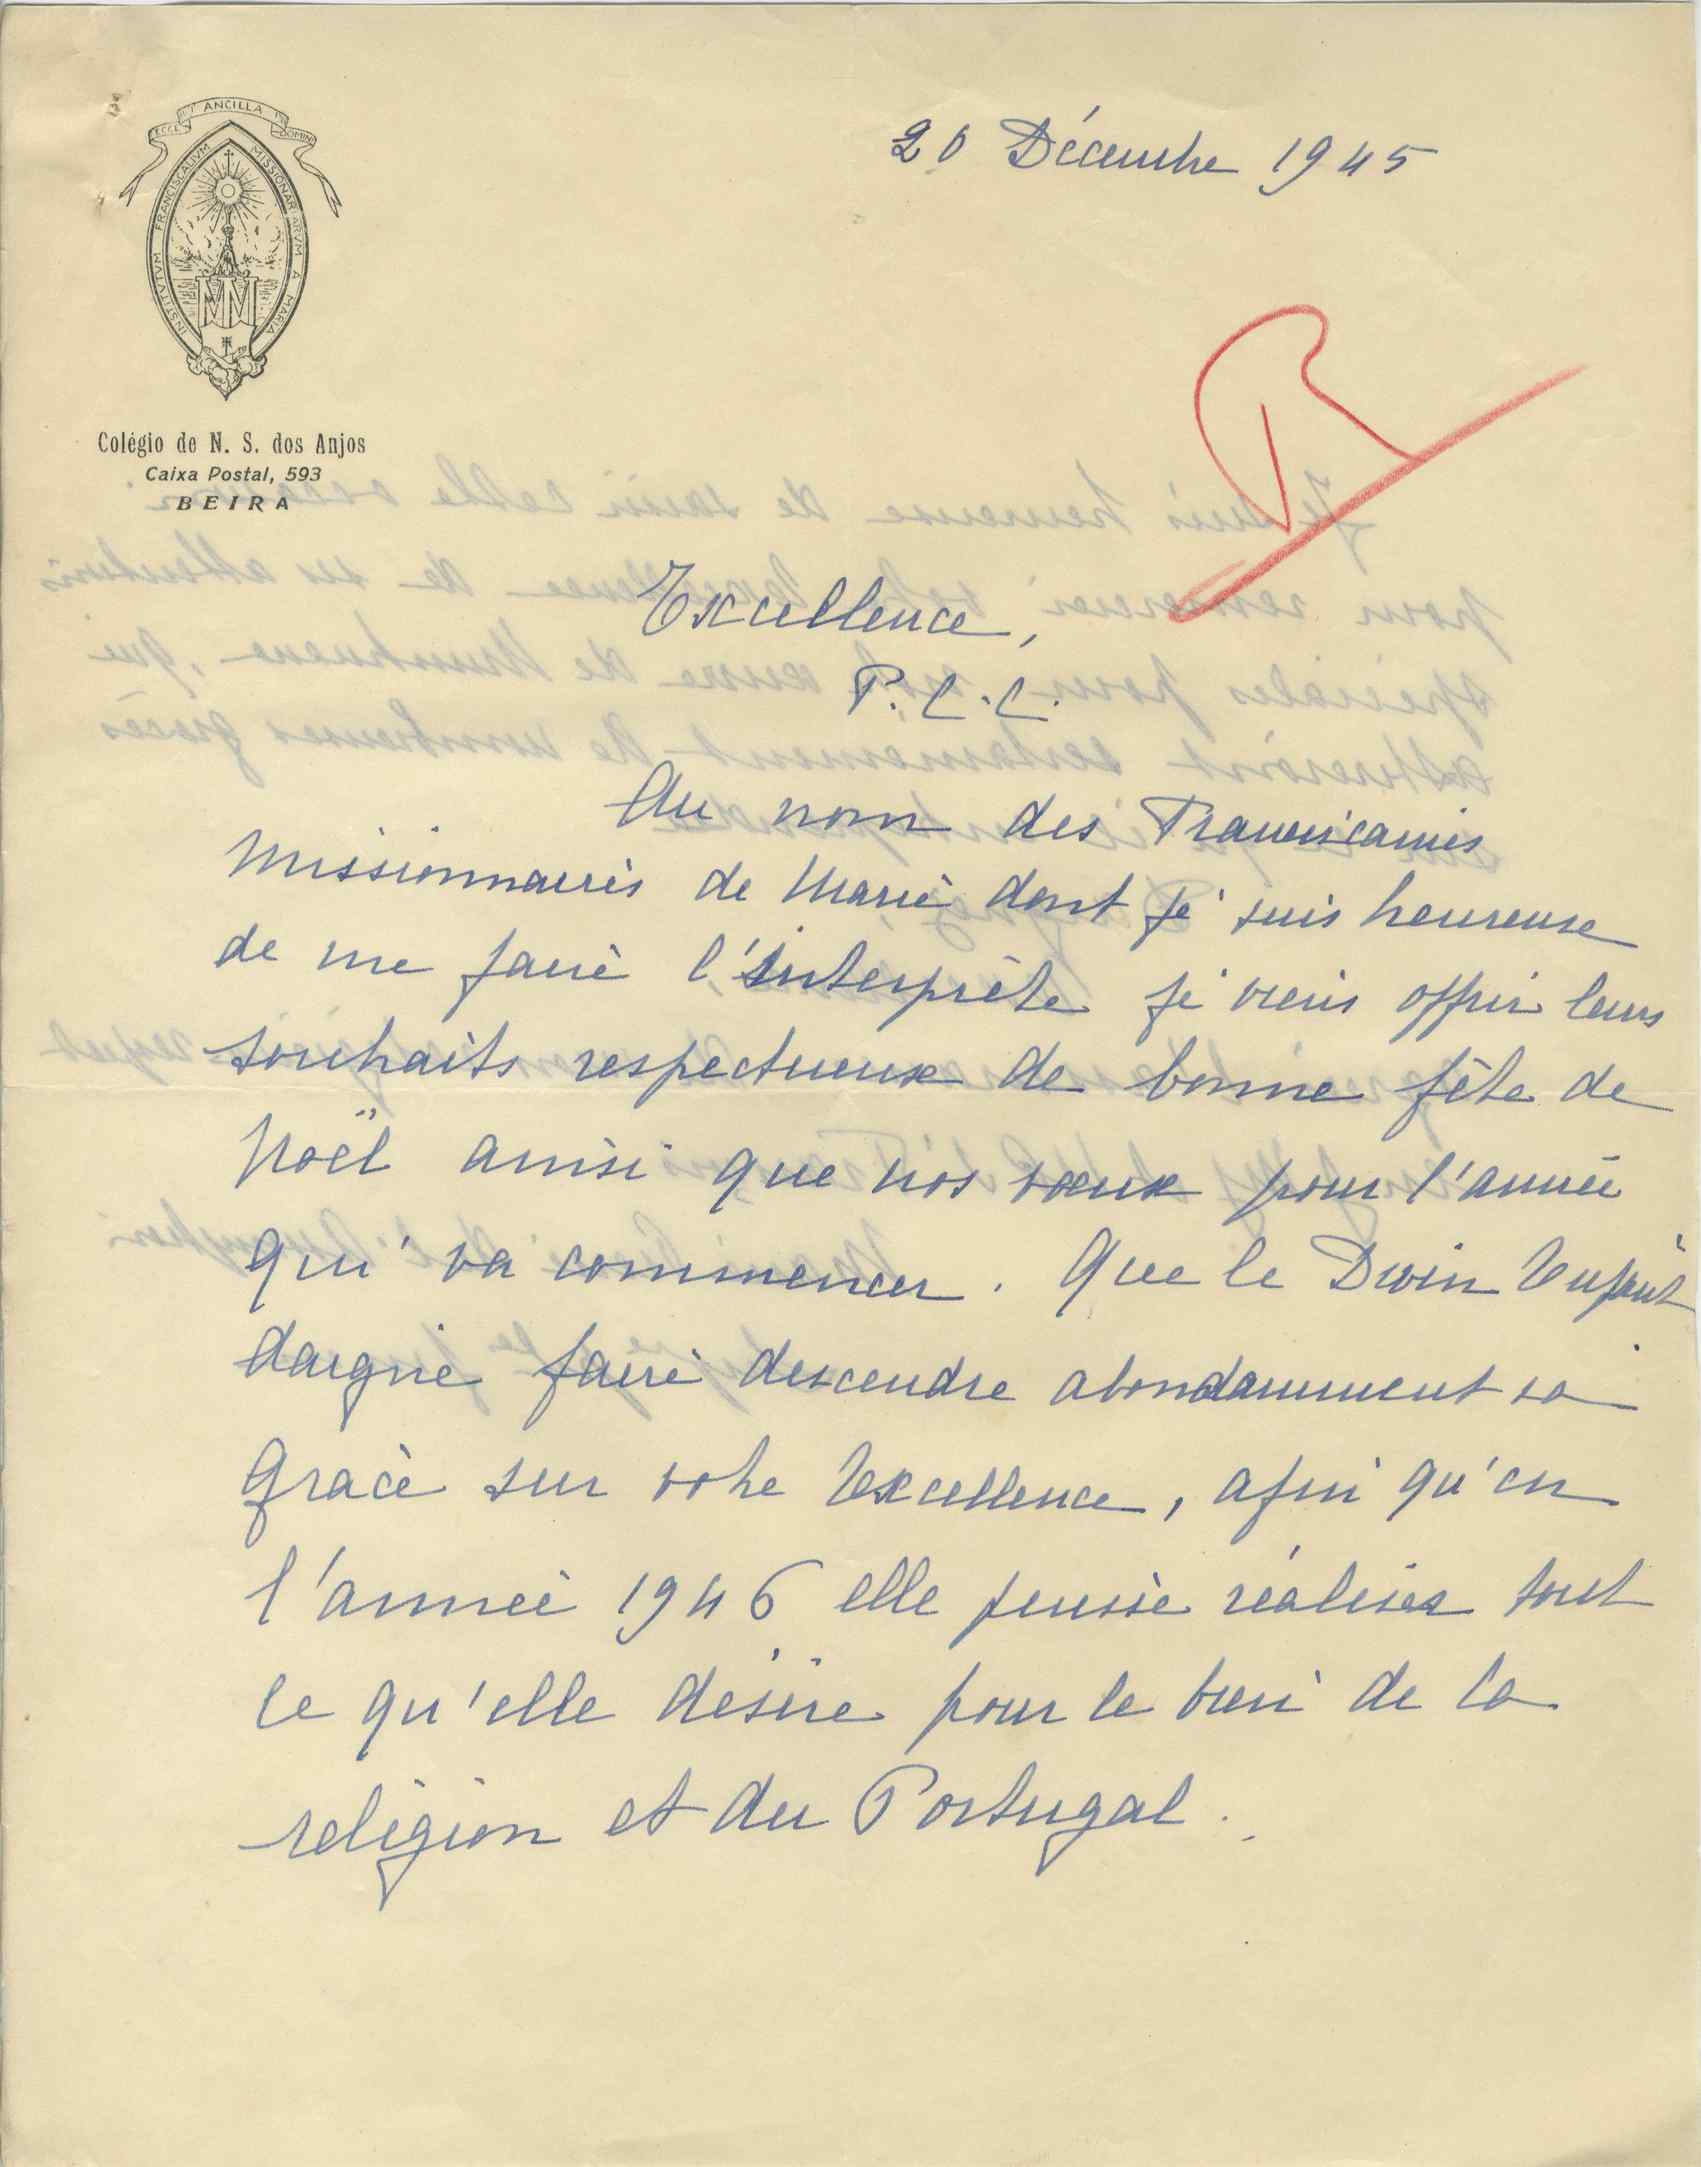 ECCE ANCILLA DOMINI
INSTITVTVM FRANCISCALIVM MISSIONARIARVM A MARIA
MM
Colégio de N. S. dos Anjos
Caixa Postal, 593
BEIRA
20 Décembre 1945
R
Excellence,
P.C.C.
Au nom des Franciscaines
Missionnaires de Marie dont je suis heureuse
de me faire l'interprète je viens offrir leurs
souhaits respectueux de bonne fête de
Noël ainsi que nos vœux pour l'année
qui va commencer. Que le Divin Enfant
daigne faire descendre abondamment sa
grâce sur votre Excellence, afin qu'en
l'année 1946 elle puisse réaliser tout
ce qu'elle désire pour le bien de la
religion et du Portugal.